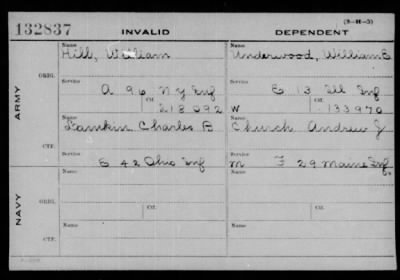 (3-H-5)
132837 INVALID DEPENDENT
Name Name
Hill, William Underwood, William E
ORIG.
Service Service
A 96 N Y Inf E 13 Ill Inf
Ctf. Ctf.
218,092 W 133970
ARMY
Name Name
Lamkin Charles B Church Andrew J
CTF.
Service Service
E 42 Ohio Inf M F 29 Maine Inf
Name Ctf. Name Ctf.
ORIG.
NAVY
Name Name
CTF.